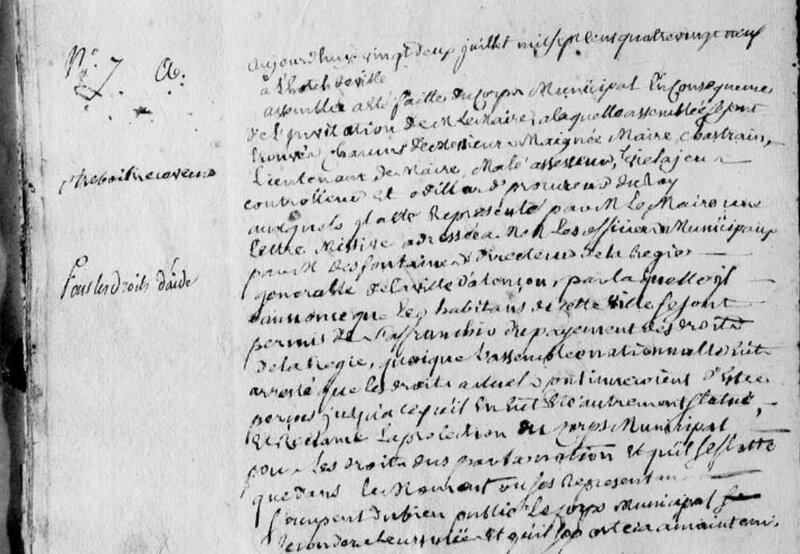 N.° 7 a.
aujourdhuy vingt deux juillet mil sept cens quatre vingt neuf
à Lhotel deville
assemblée alasalle du Corps Municipal En Consequence
de L'invitation de M. Le Maire, alaquelle assemblée se sont
trouvés chacuns de Messieurs Maignée Maire, Chastrain,
Lieutenant de Maire, Malé assesseur, Lejeune
controlleur Et odillard procureur du Roy
auxquels ila Eté Representé par M Le Maire une
Lettre Missive adressée a MM Les officiers Municipaux
par M desfontaines directeur de la Regie
generalle de la ville d'alençon, par la quelle il
annonce que Les habitans de cette ville se sont
permis de s'affranchir du payement des droits
de la Regie, quoique L'assemblée nationnalle Eut
arresté que les droits actuels continueroient d'Estre
perçus jusqu'a ce qu'il En Eut Eté autrement statué,
Et Reclame La protection du Corps Municipal
pour Les droits dus par la nation Et qu'il se flatte
que dans le Moment ou ses Representans
s'occupent du bien public Le Corps Municipal
secondera leurs vuës Et qu'il a maintenir
Tous les droits d'aide